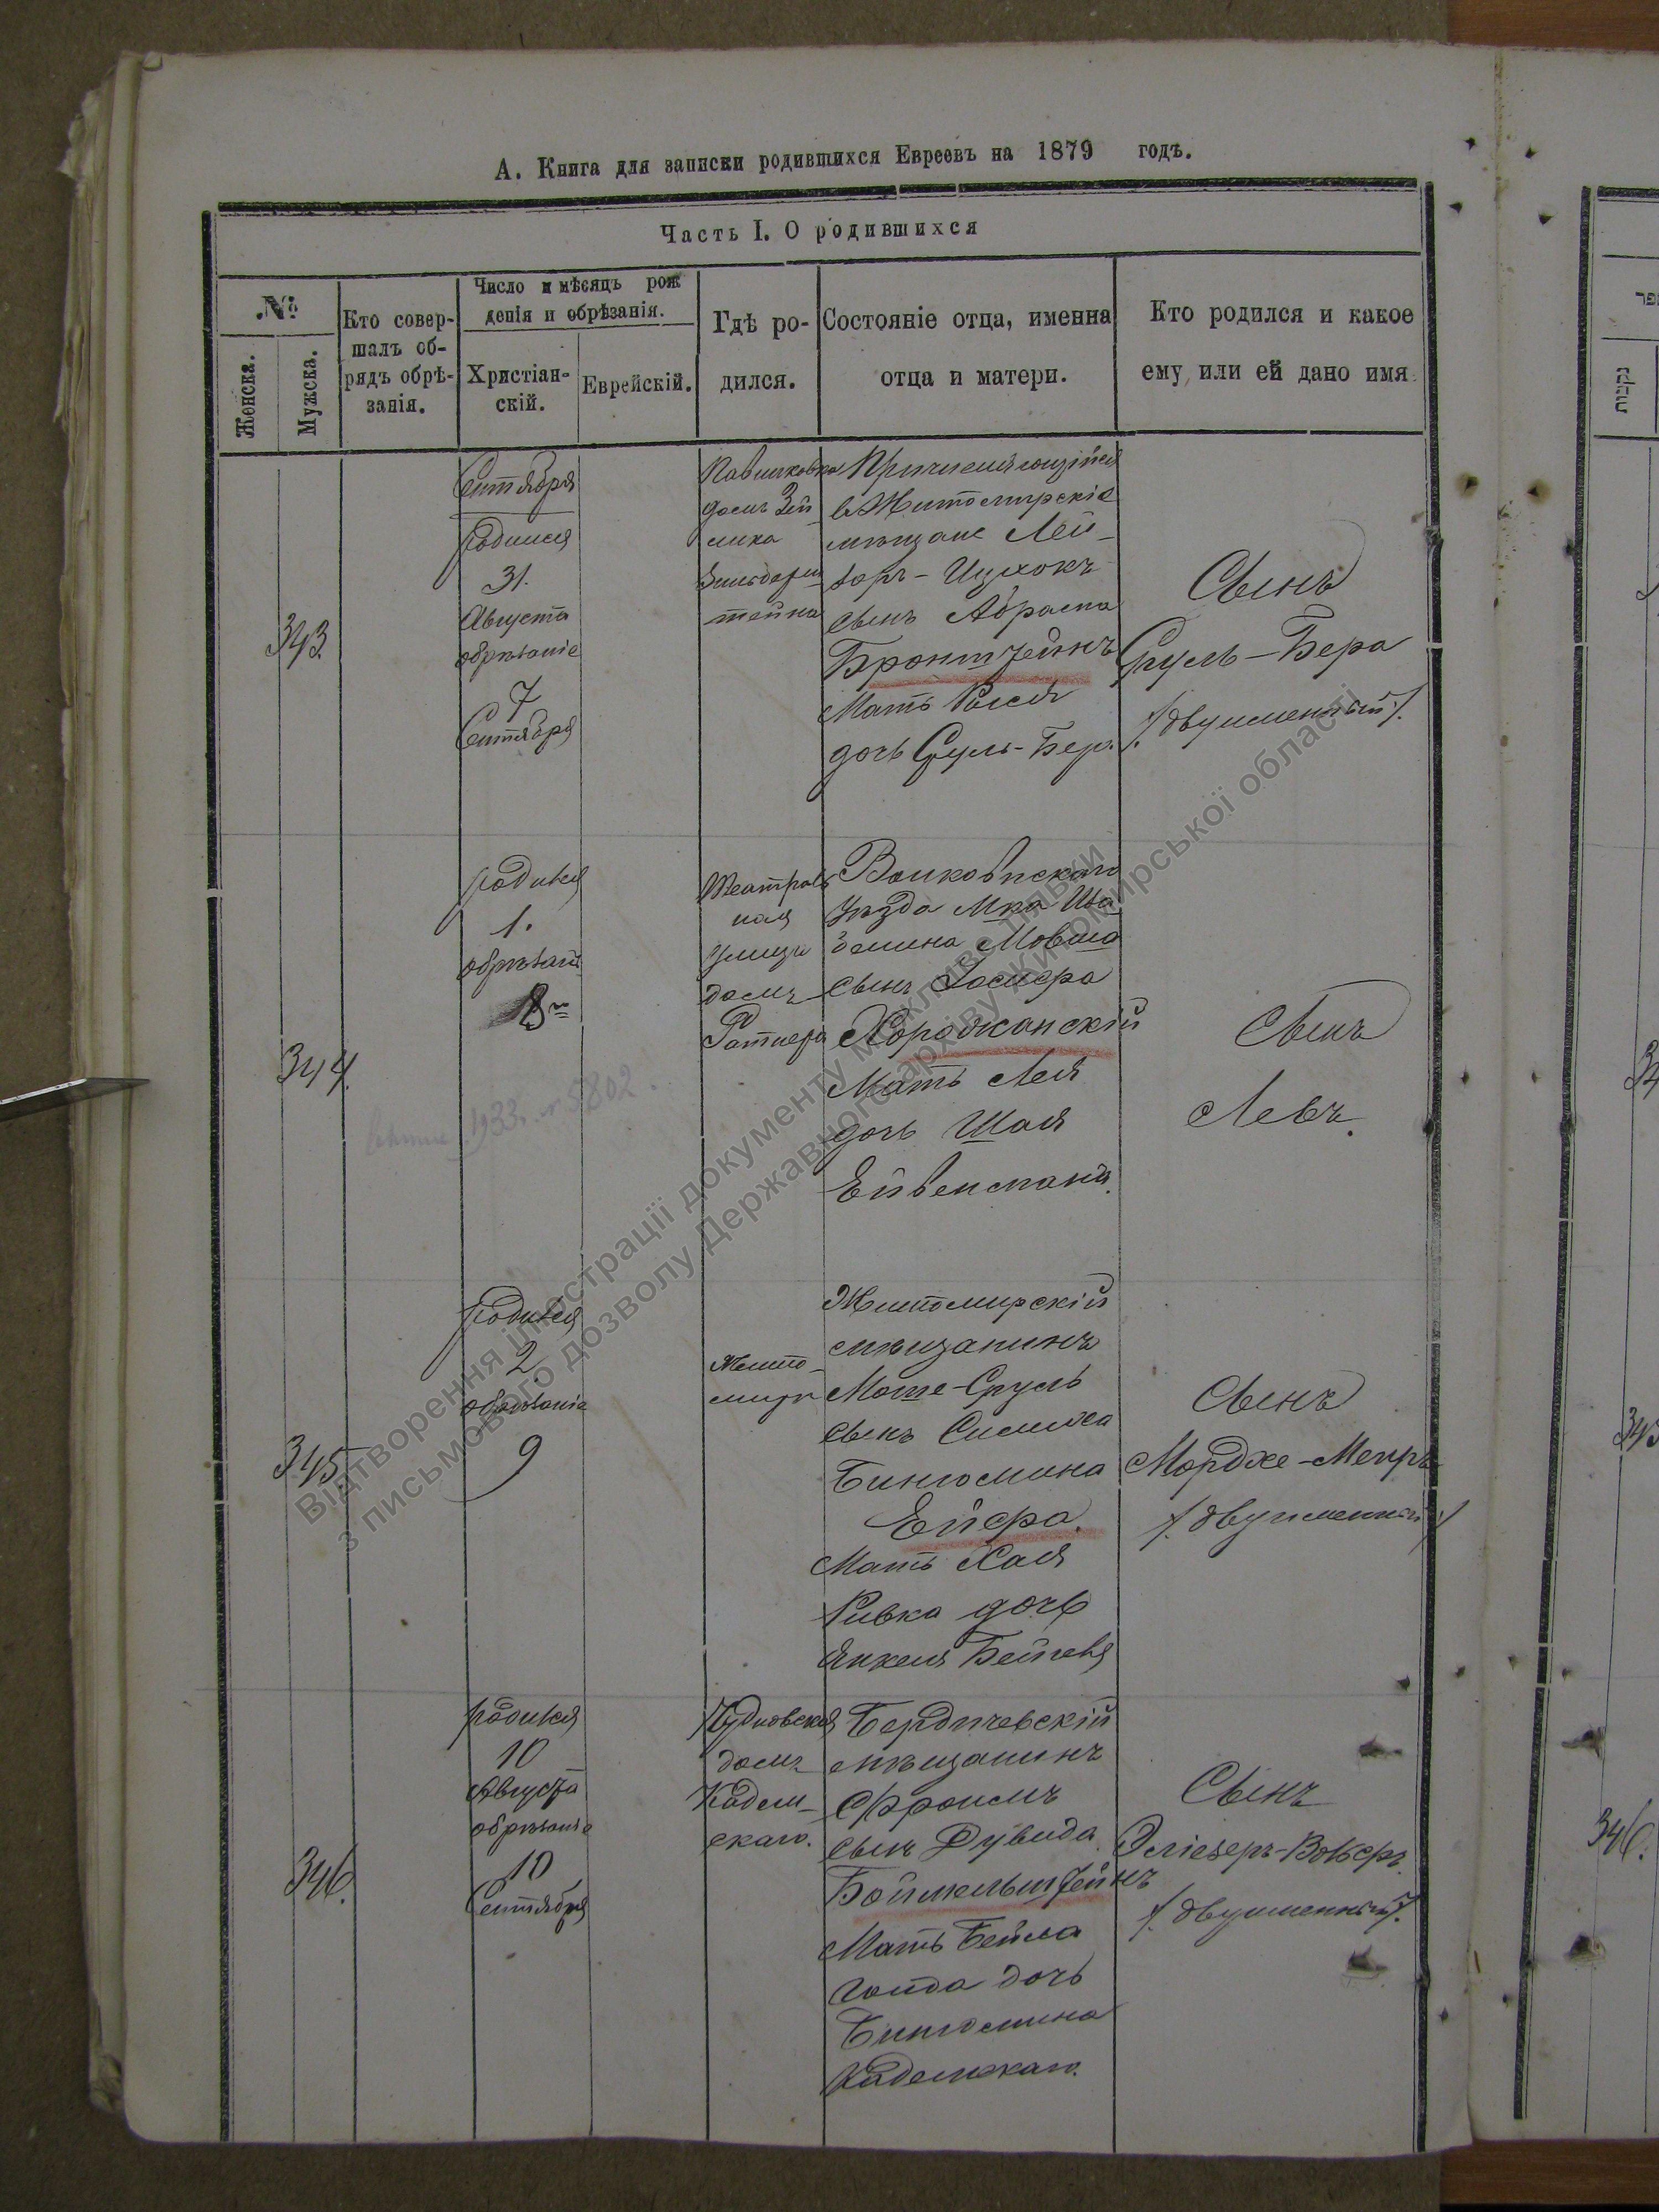 А. Книга для записки родившихся Евреевъ на 1879 годъ.
Часть I. О родившихся
№
Женска.
Мужска.
Кто совер-
шалъ об-
рядъ обрѣ-
занія.
Число и мѣсяцъ рож
денія и обрѣзанія.
Христіан-
скій.
Еврейскій.
Гдѣ ро-
дился.
Состояніе отца, именна
отца и матери.
Кто родился и какое
ему, или ей дано имя
343
Сентября
родился
31.
Августа
обрѣзаніе
7
Сентября
Павликовка
домъ Зей
лика
тейна
Причисляющійся
въ Житомирскіе
мѣщане Лей-
зоръ-Ицхокъ
сынъ Абрама
Бронштейнъ
Мать Рися
дочь Сруль-Бера
Сынъ
Сруль-Бера
/.двуименный/.
344.
родился
1.
обрѣзаніе
8
1933 г. № 5802.
Театраль
ная
улица
домъ
Ратнера
Волковискаго
уѣзда Мка
Мовша
сынъ
Хорожанскій
Мать Лея
дочь Шая
Сынъ
Левъ.
345
родился
2
обрѣзаніе
9
Жито-
миръ
Житомирскій
мѣщанинъ
Моше-Сруль
сынъ
Бинюмина
Ейера.
Мать Хая
Ривка дочь
Янкеля
Сынъ
Мордхе-Меиръ
/.двуименный/
346.
родился
10
Августа
обрѣзаніе
10
Сентября
Чудновская
домъ
Кадем-
скаго.
Бердичевскій
мѣщанинъ
Фроимъ
сынъ Дувида
Боймельштейнъ
Мать Бейла
Гольда дочь
Бинюмина
Кадемскаго.
Сынъ
Эліезеръ-Вольфъ
/.двуименный/.
Відтворення ілюстрації документу можливе тільки
з письмового дозволу Державного архіву Житомирської області
נקבות
34
345
346.